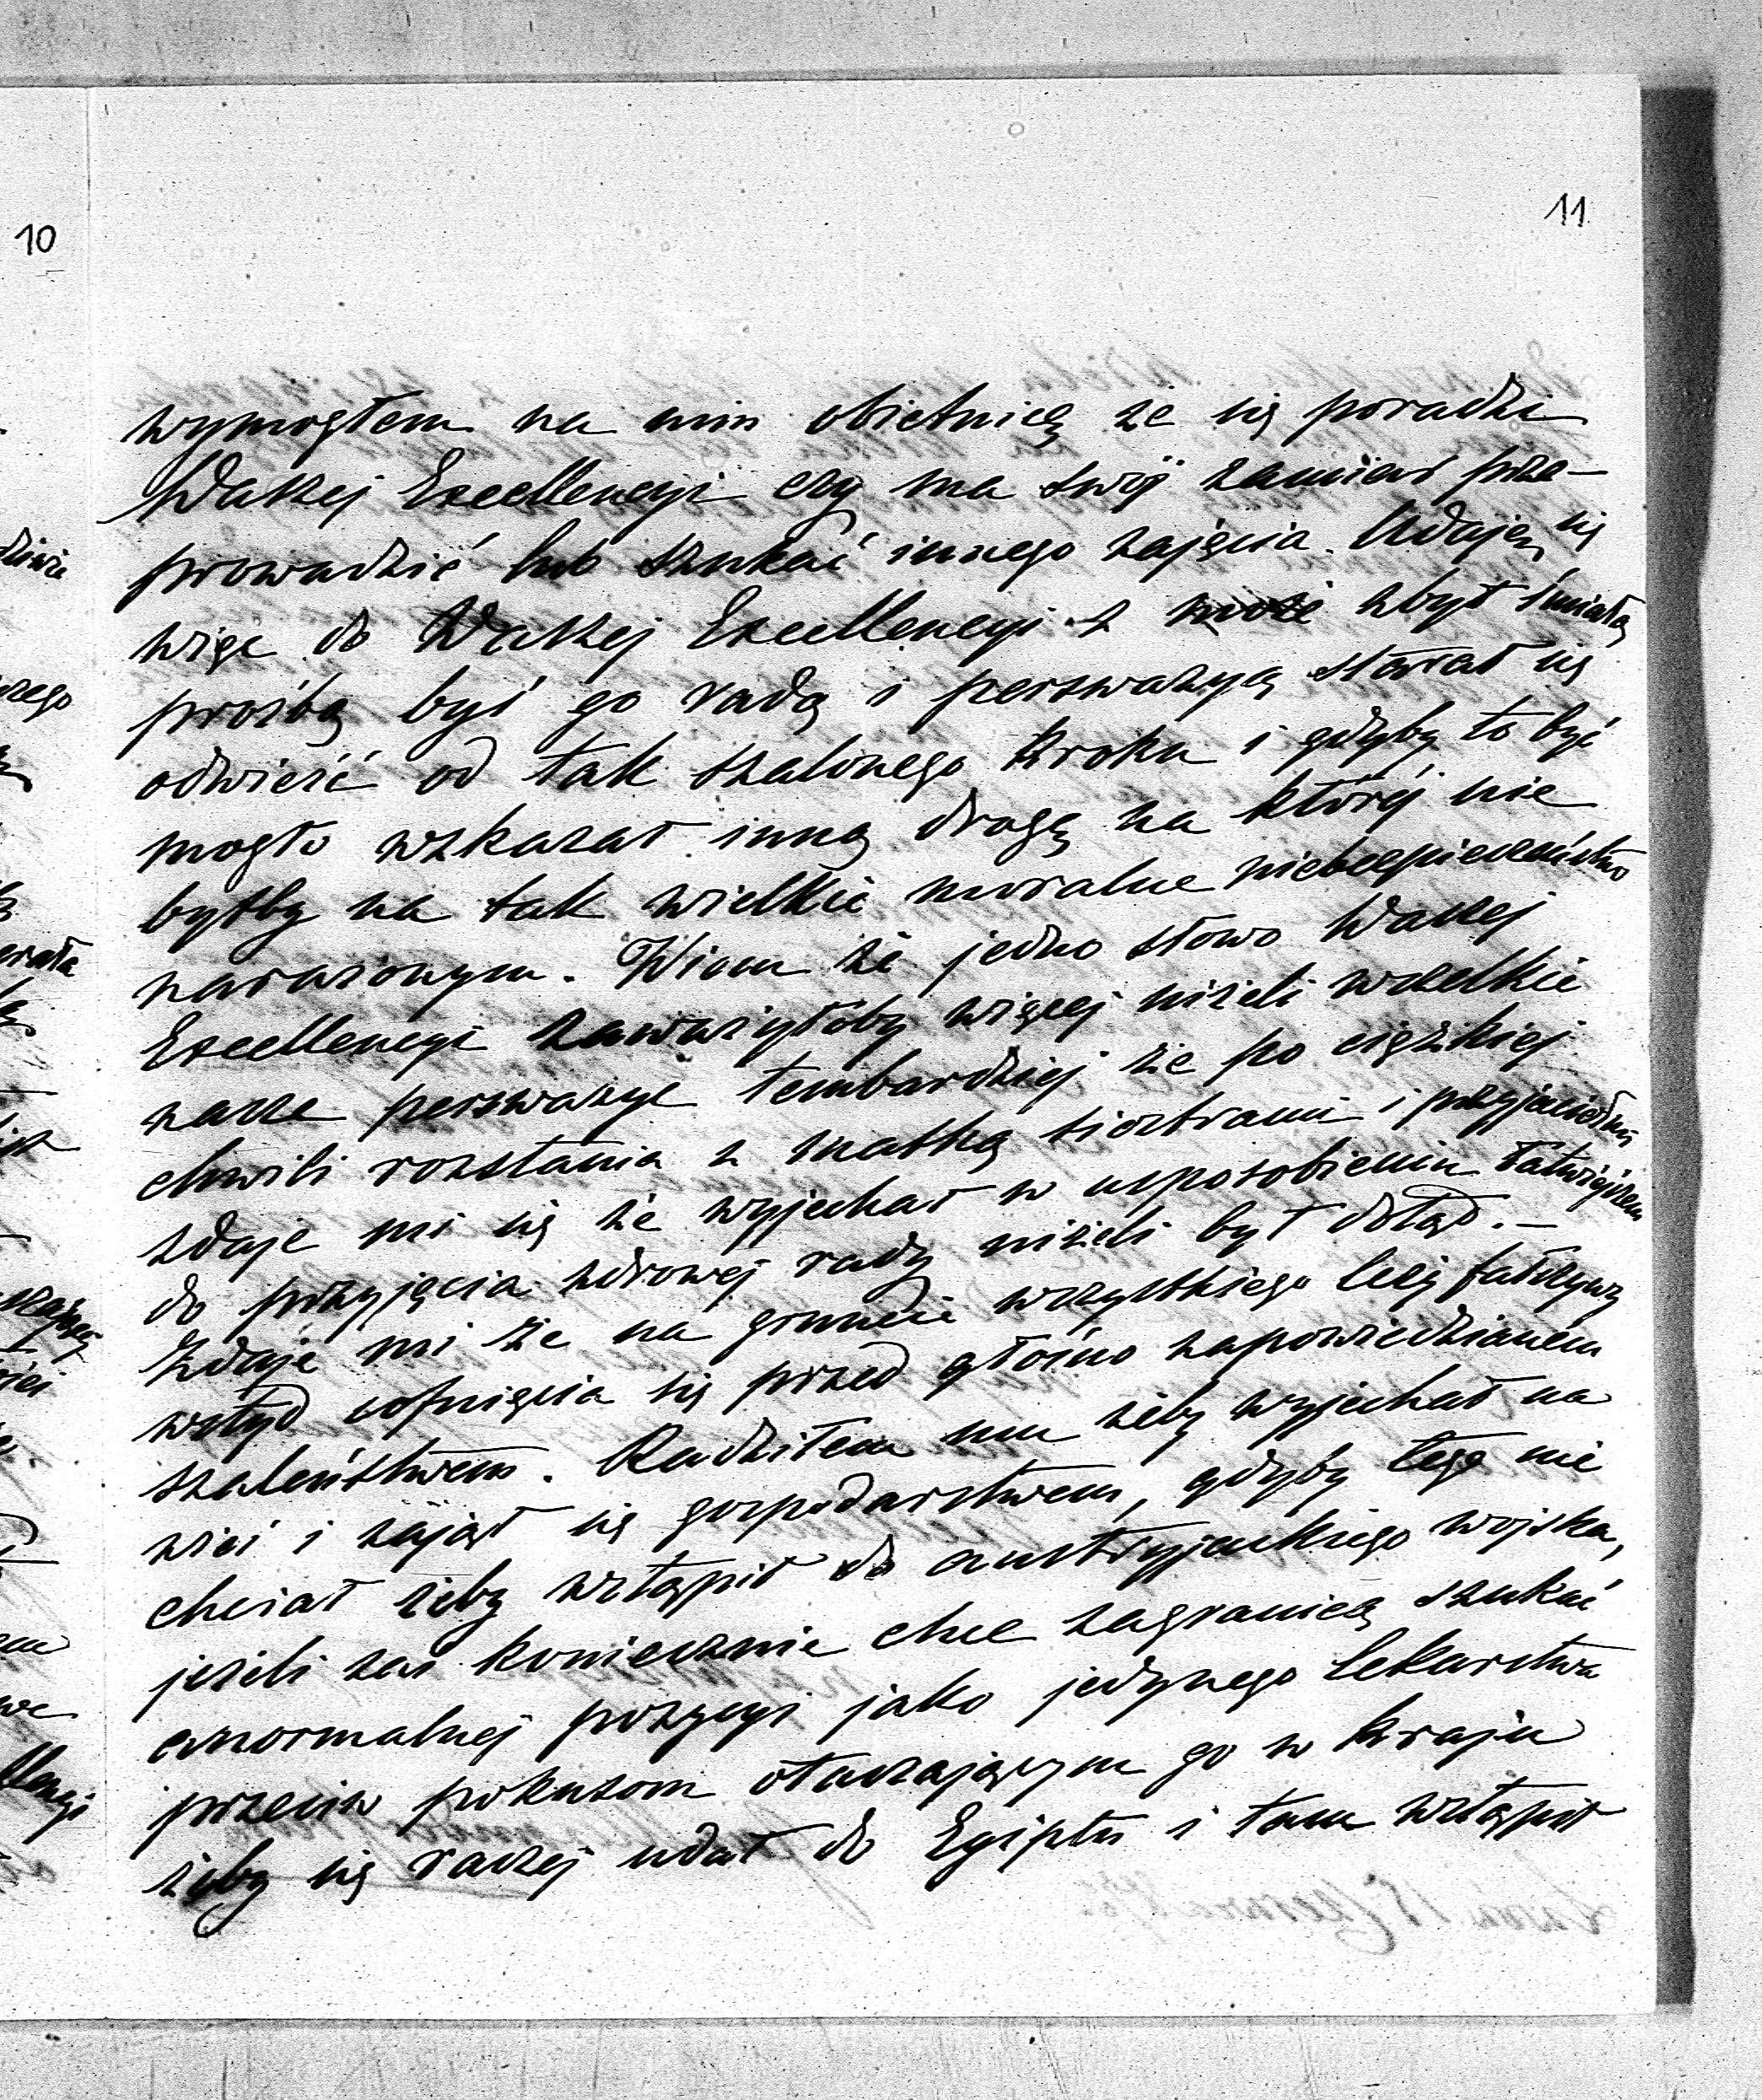 10
11
wymogłem na nim obietnicę że się poradzi
Waszej Excellencyi czy ma swój zamiar prze-
prowadzić lub szukać innego zajęcia. Udaję się
więc do Waszej Excellencyi z może zbyt śmiałą
prośbą byś go radą i perswazyą starał się
odwieść od tak szalonego kroku i gdyby to być
mogło wskazał inną drogę na której nie
byłby na tak wielkie moralne niebezpieczeństwo
narażonym. Wiem że jedno słowo Waszej
Excellencyi zaważyłoby więcej niżeli wszelkie
nasze perswazye tembardziej że po ciężkiej
chwili rozstania z matką siostrami i przyjaciółmi
zdaje mi się że wyjechał w usposobieniu łatwiejszem
do przyjęcia zdrowej rady niżeli był dotąd. –
Zdaje mi że na gruncie wszystkiego leży fałszywy
wstyd cofnięcia się przed głośno zapowiedzianem
szaleństwem. Radziłem mu żeby wyjechał na
wieś i zajął się gospodarstwem, gdyby tego nie
chciał żeby wstąpił do austryjackiego wojska,
jeżeli zaś koniecznie chce zagranicą szukać
anormalnej pozycyi jako jedynego lekarstwa
przeciw pokusom otaczającym go w kraju
żeby się raczej udał do Egiptu i tam wstąpił